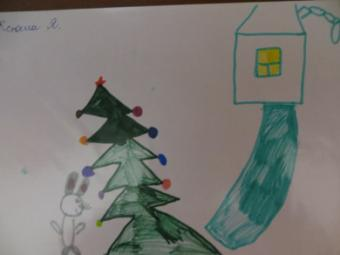 Ксюша Я.